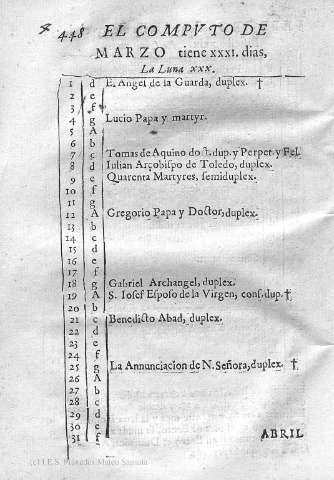 448
EL COMPVTO DE
MARZO tiene XXXI. dias,
La Luna XXX.
1 d E. Angel de la Guarda, duplex. †
2 e
3 f
4 g Lucio Papa y martyr.
5 A
6 b
7 c Tomas de Aquino doct. dup. y Perpet. y Fel.
8 d Iulian Arçobispo de Toledo, duplex.
9 e Quarenta Martyres, semiduplex.
10 f
11 g
12 A Gregorio Papa y Doctor, duplex.
13 b
14 c
15 d
16 e
17 f
18 g Gabriel Archangel, duplex.
19 A S. Iosef Esposo de la Virgen, conf. dup. †
20 b
21 c Benedicto Abad, duplex.
22 d
23 e
24 f
25 g La Annunciacion de N. Señora, duplex. †
26 A
27 b
28 c
29 d
30 e
31 f
ABRIL
(c) I.E.S. Práxedes Mateo Sagasta